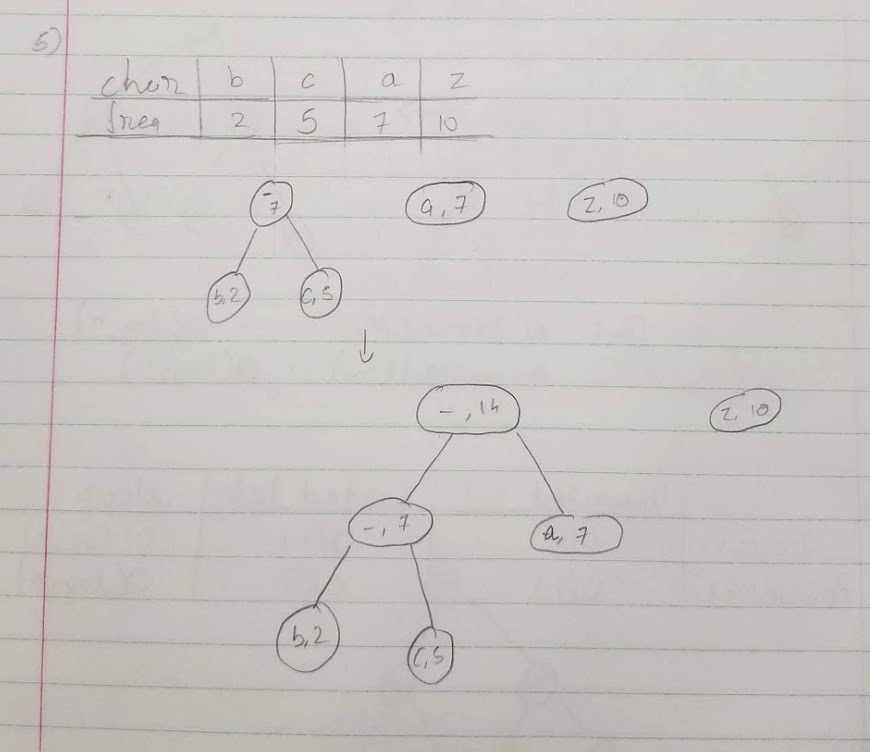 5)
char b c a z
freq 2 5 7 10
-
7 a, 7 z, 10
b, 2 c, 5
↓
-, 14 z, 10
-, 7 a, 7
b, 2 c, 5